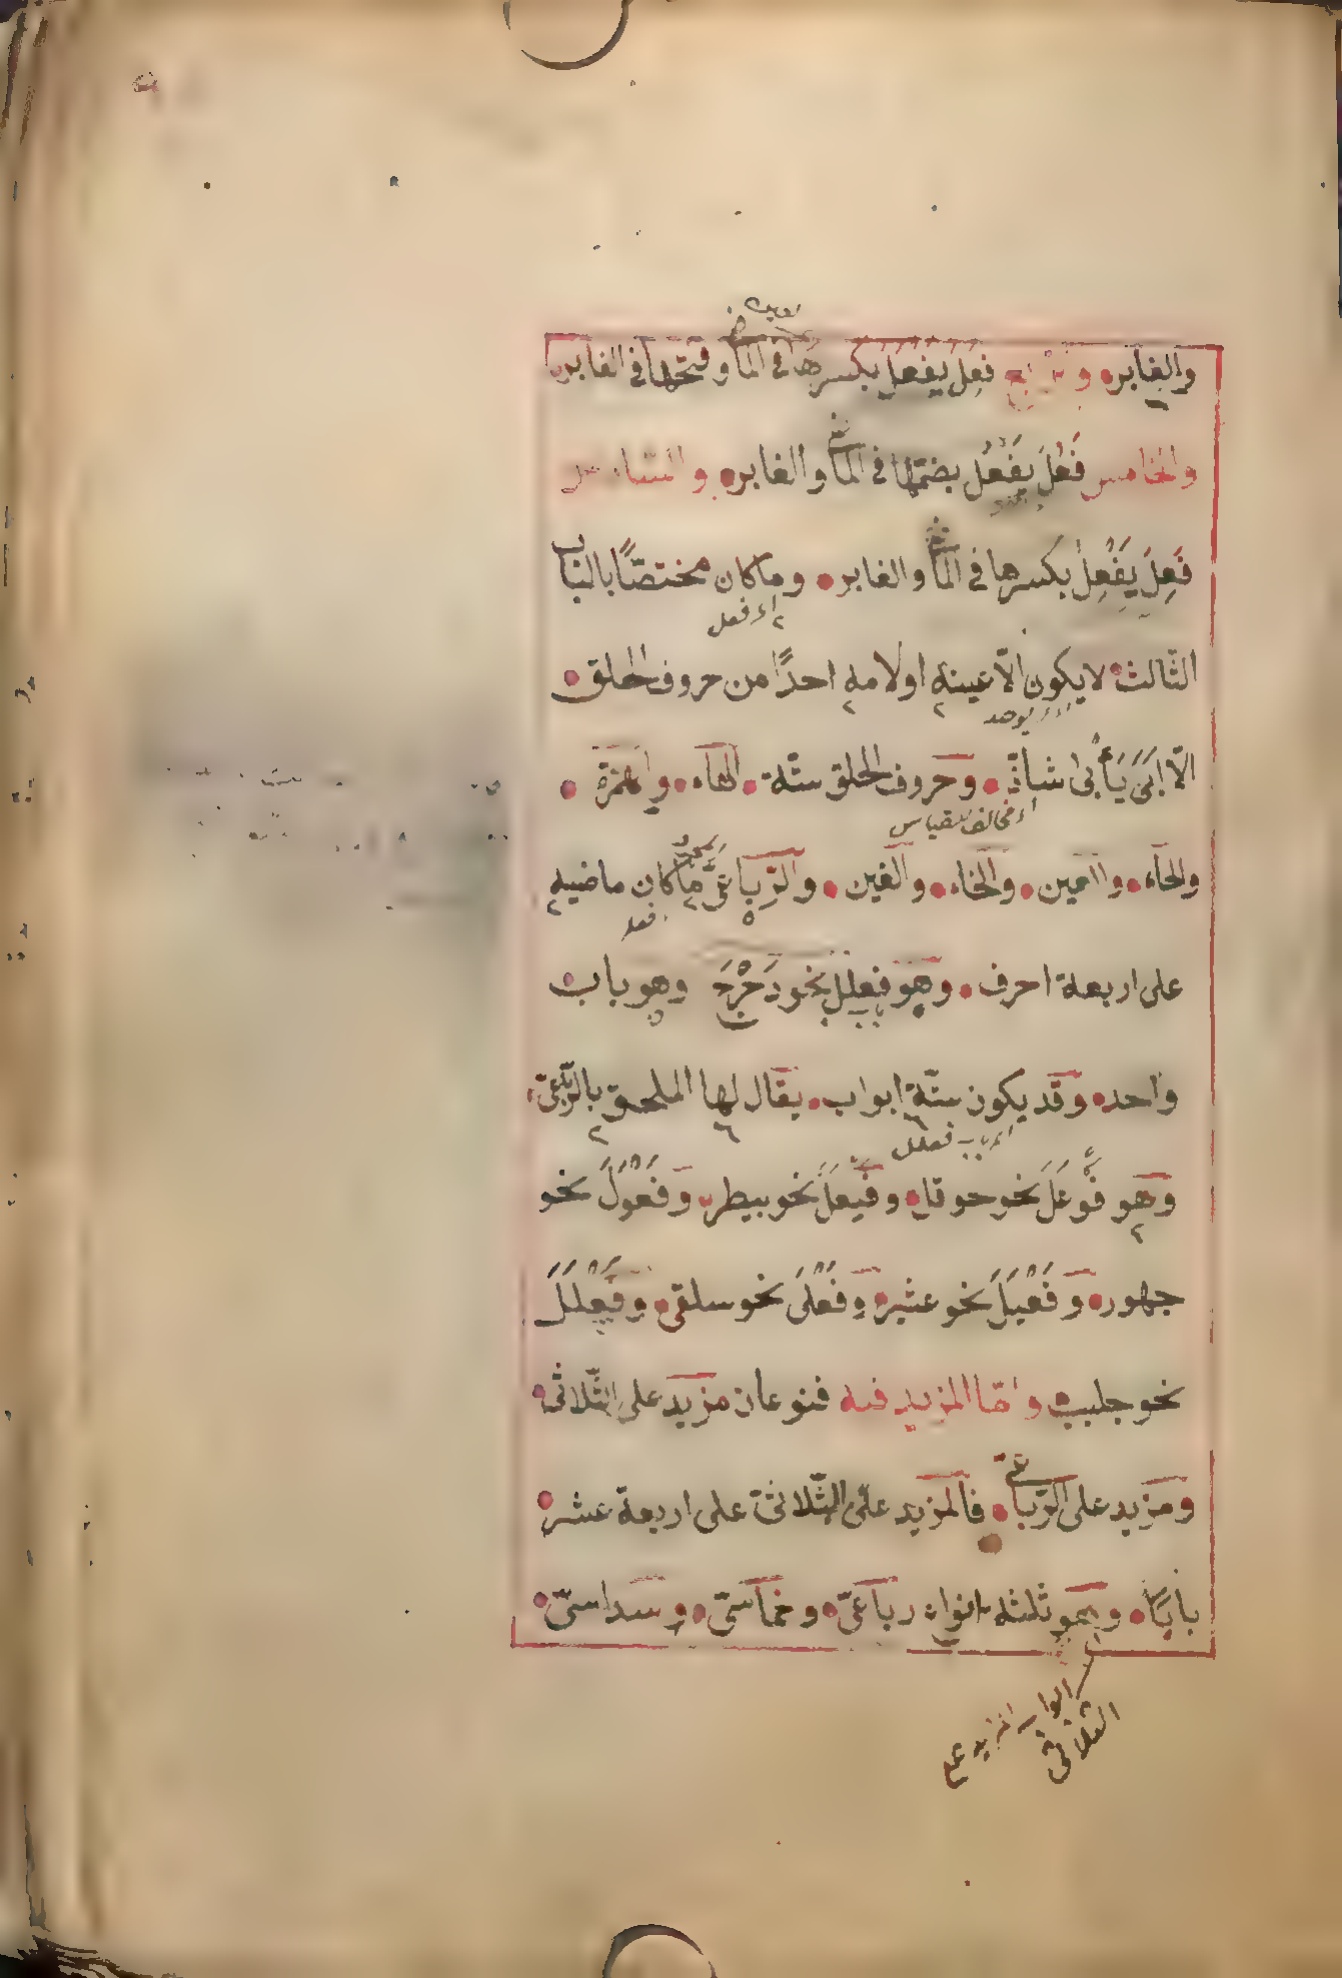 والغابر والرابع فَعِلَ يفعل بكسرها في الماضى وفتحها في الغابر
والخامس فَعُلَ يَفْعُلُ بضمّها في الماضى والغابر والسّادس
فَعِلَ يَفْعِلُ بكسرها في الماضى والغابر وما كان مختصًّا بالباب
اى فعل
الثّالث لا يكون الّا عينه او لامه احدًا من حروف الحلق
يوجد
الّا ابَىَ يَأْبىٰ شاذّ وحروف الحلق ستّة الهاء والهمزة
اى مخالف للقياس
والحاء والعين والخاء والغين والرّباعىّ ما كان ماضيه
على اربعة احرف وهو فعلل نحو دَحْرَجَ وهو باب
واحد وقد يكون ستّة ابواب يقال لها الملحق بالرّباعىّ
اى باب فعلل
وهو فَوْعَلَ نحو حوقل وفَيْعَلَ نحو بيطر وفَعْوَلَ نحو
جهور وفَعْيَلَ نحو عثير وفَعْلَىَ نحو سلقى وفَعْلَلَ
نحو جلبب وامّا المزيد فيه فنوعان مزيد على الثّلاثى
ومزيد على الرّباعى فالمزيد على الثّلاثىّ على اربعة عشر
بابًا وهو ثلثة انواع رباعىّ وخماسىّ وسداسىّ
ابواب المزيد على
الثلاثى